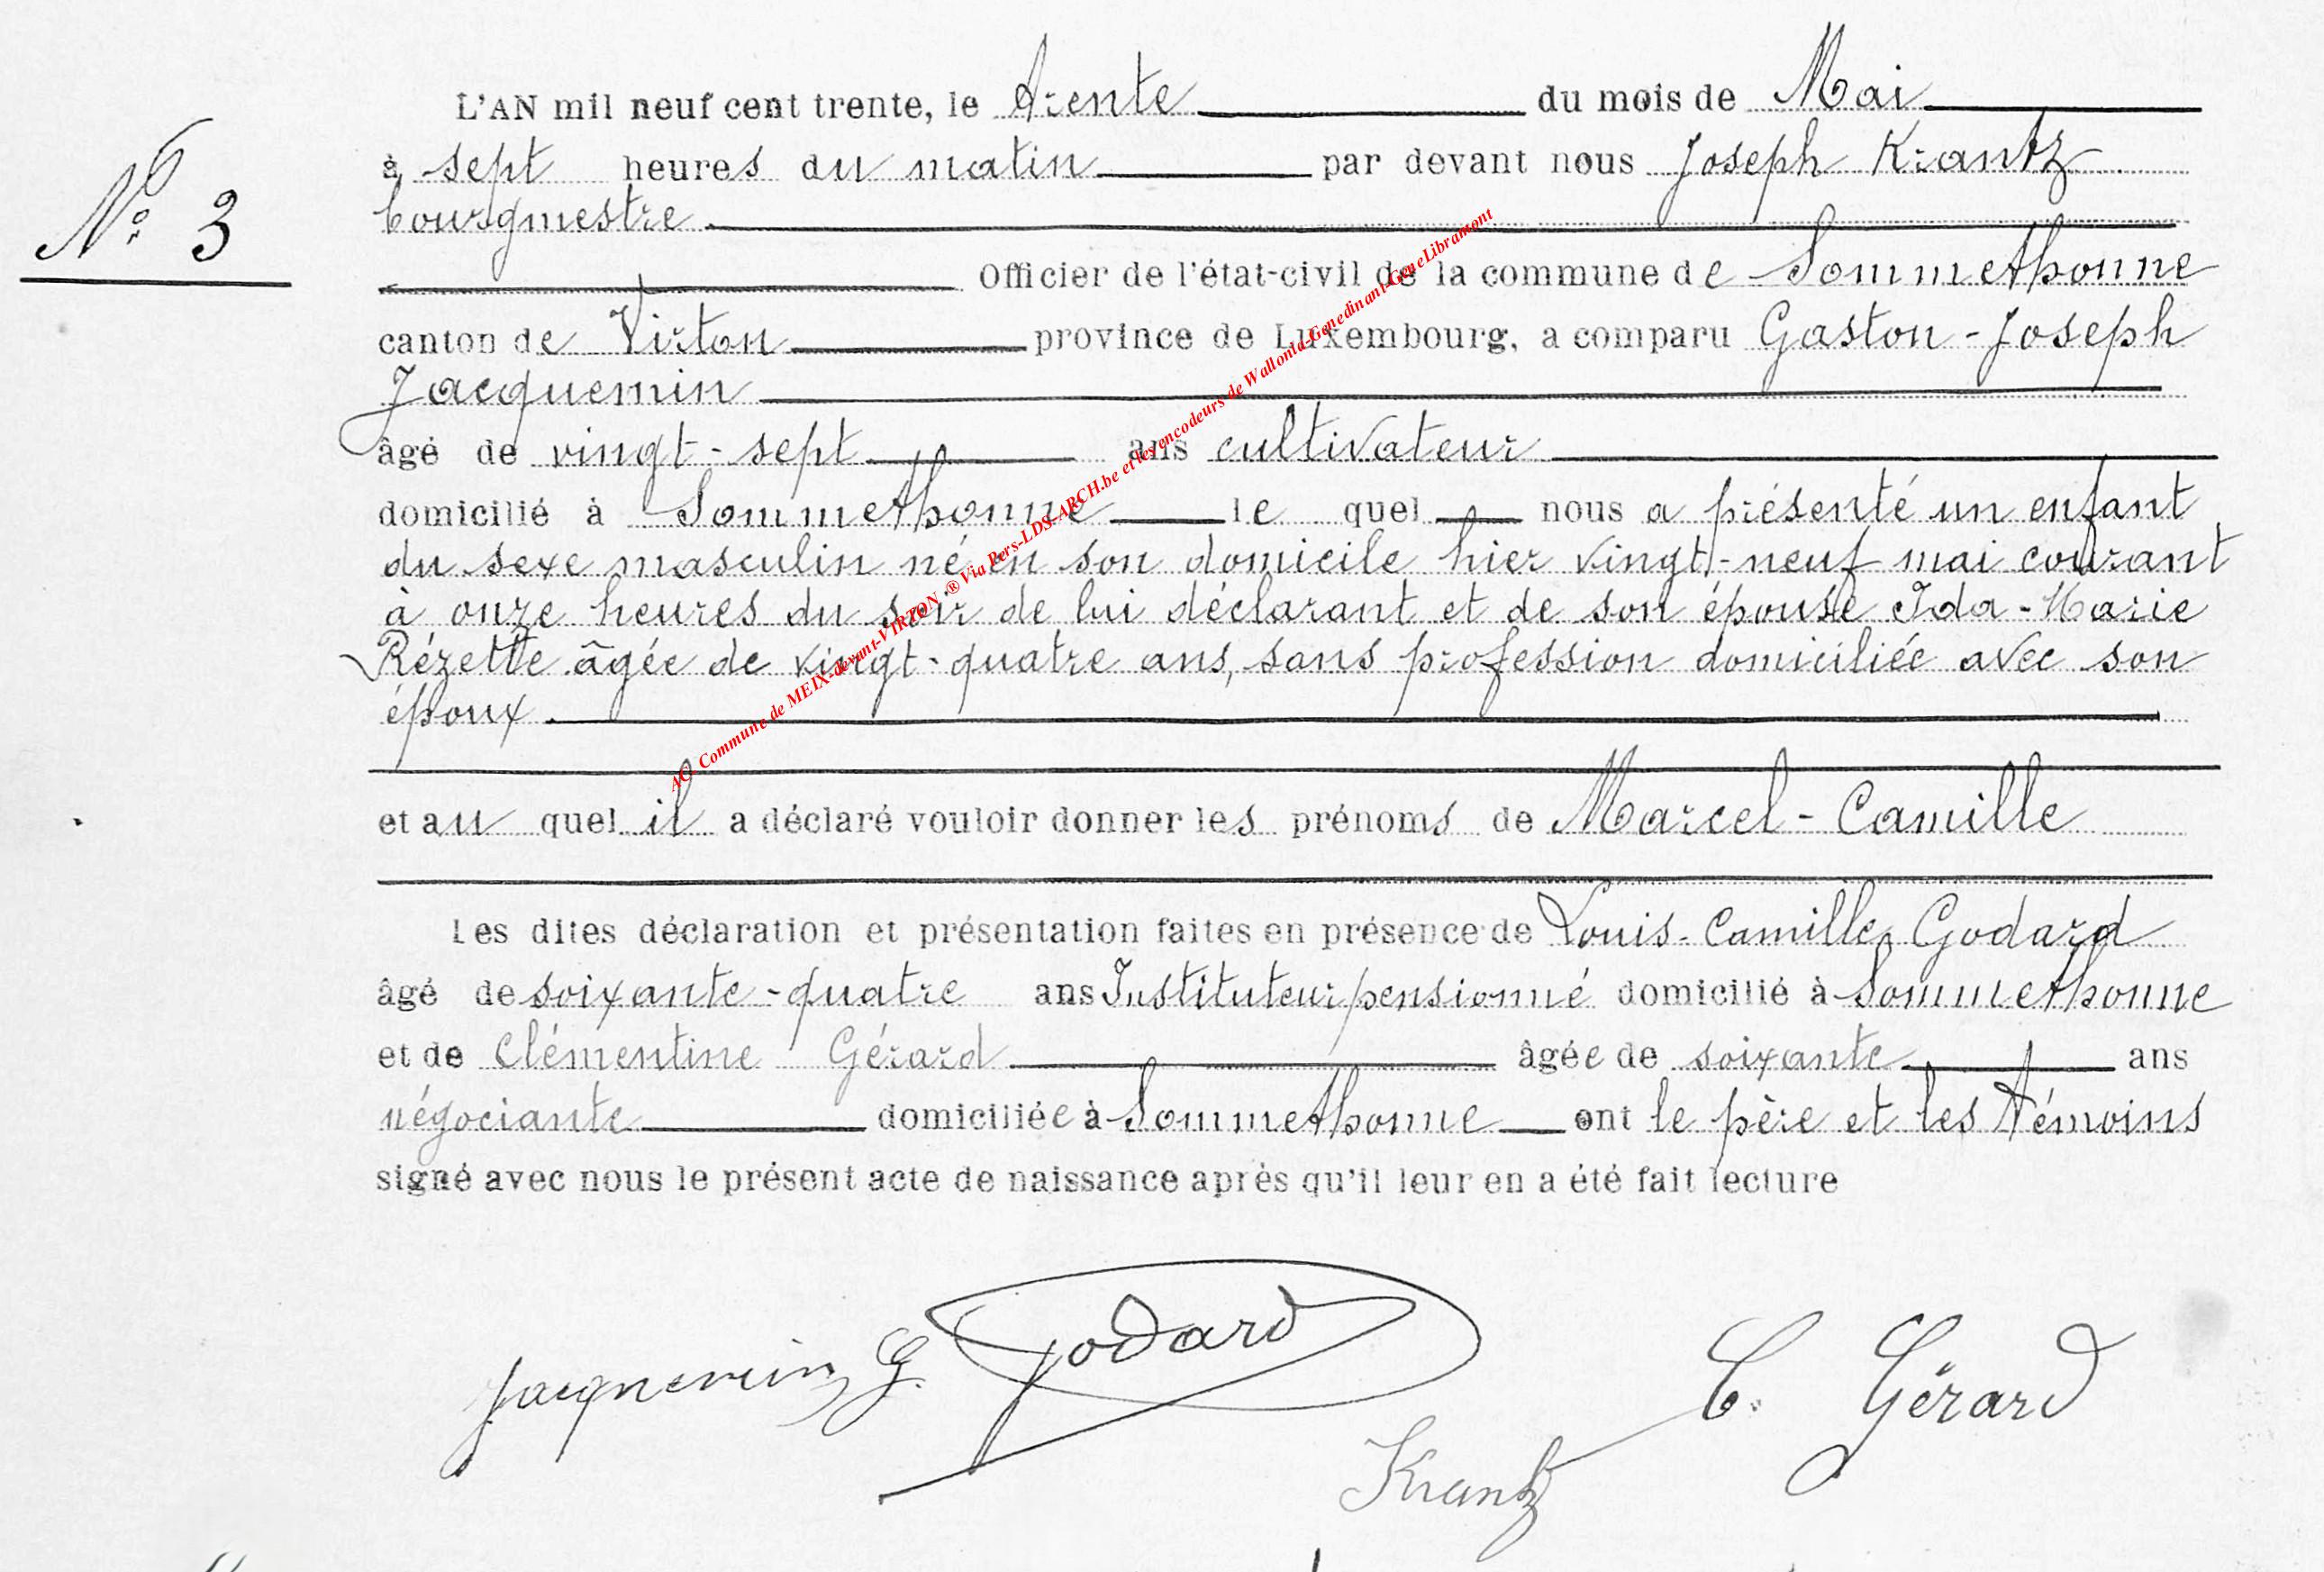 L'AN mil neuf cent trente, le trente du mois de Mai
N° 3
à sept heures du matin par devant nous Joseph Krantz
bourgmestre
Officier de l'état-civil de la commune de Sommethonne
canton de Virton province de Luxembourg, a comparu Gaston-Joseph
Jacquemin
âgé de vingt-sept ans cultivateur
domicilié à Sommethonne le quel nous a présenté un enfant
du sexe masculin né en son domicile hier vingt-neuf mai courant
à onze heures du soir de lui déclarant et de son épouse Ida-Marie
Rézette âgée de vingt-quatre ans, sans profession domiciliée avec son
époux.
et au quel il a déclaré vouloir donner les prénoms de Marcel-Camille
Les dites déclaration et présentation faites en présence de Louis-Camille Godard
âgé de soixante-quatre ans Instituteur pensionné domicilié à Sommethonne
et de Clémentine Gérard âgée de soixante ans
négociante domiciliée à Sommethonne ont le père et les témoins
signé avec nous le présent acte de naissance après qu'il leur en a été fait lecture
Jacquemin G. Godard
C. Gérard
Krantz
AC Commune de MEIX-devant-VIRTON ® Via Pers-LDS-ARCH.be et les encodeurs de Wallonia-Genedinant-GeneLibramont